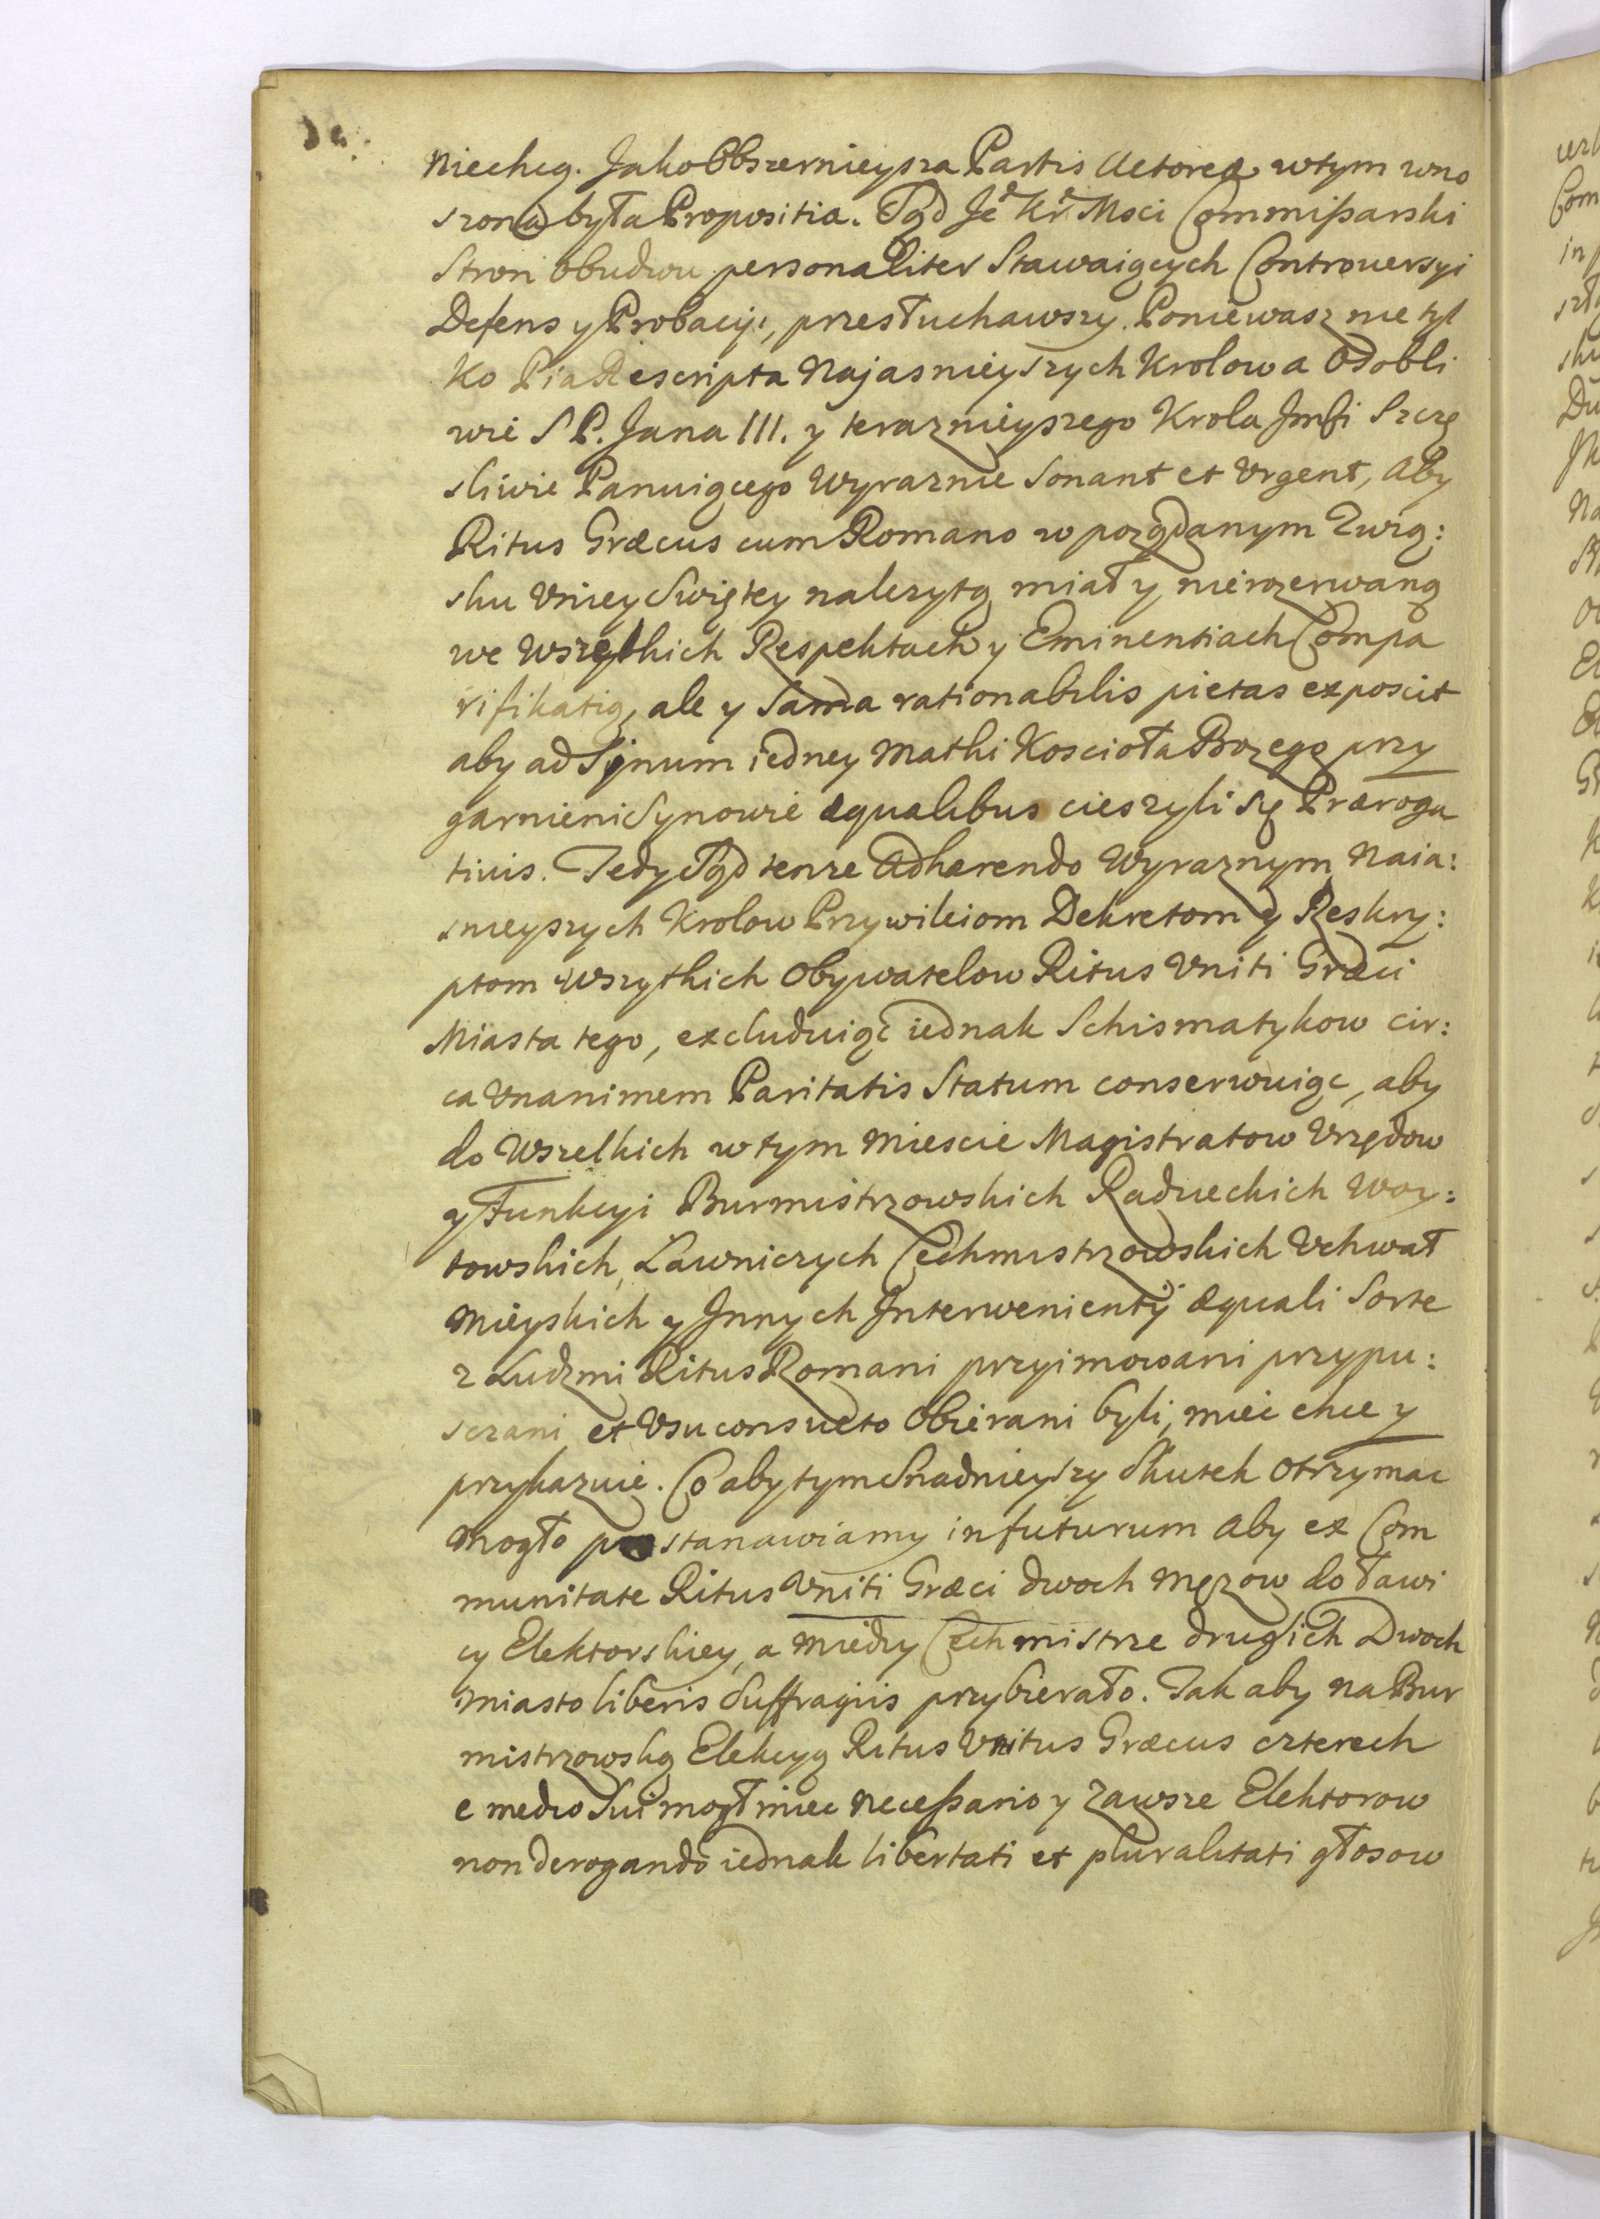 Niechcą. Jako Obszernieysza Partis Actorea wtym wno
szona była Propositia. Sąd Je° Kr: Msci Commißarski
Stron obudwu personaliter Stawaiących Controuersyi
Defens y Probacyi, przesłuchawszy. Poniewasz nie tyl
ko Pia Rescripta Najasnieyszych Krolow a Osobli
wie S P. Jana III. y teraznieyszego Krola Jmsci Szczę
sliwie Panuiącego Wyraznie Sonant et Vrgent, Aby
Ritus Græcus cum Romano w pożądanym Zwią:
sku Vniey Swiętey nalezytą miał y nierozerwaną
we Wszytkich Respektach y Eminentiach Compa
rifikatią, ale y Sama rationabilis pietas exposcit
aby ad Sinum iedney Matki Koscioła Bozego przy
garnieni Synowie æqualibus cieszyli się Præroga
tiuis. Tedy Sąd tenze Adhærendo Wyraznym Naia:
snieyszych Krolow Przywileiom Dekretom y Reskry:
ptom Wszytkich Obywatelow Ritus Vniti Græci
Miasta tego, excluduiąc iednak Schismatykow cir:
ca Vnanimem Paritatis Statum conserwuiąc, aby
do Wszelkich w tym Miescie Magistratow Vrzędow
y Funkcyi Burmistrzowskich Radzieckich Woy:
towskich, Ławniczych Cechmistrzowskich Vchwał
Mieyskich y Innych Interwenientij æquali Sorte
z Ludzmi Ritus Romani przyimowani przypu:
szczani et Vsu consueto Obierani byli, miec chce y
przykazuie. Co aby tym Snadnieyszy Skutek otrzymac
mogło postanawiamy in futurum aby ex Com
munitate Ritus Vniti Græci dwoch Męzow do Ławi
cy Elektorskiey, a miedzy Cechmistrze drugich Dwoch
Miasto liberis Suffragiis przybierało. Tak aby na Bur
mistrzowską Elekcyą Ritus Vnitus Græcus czterech
e medio Sui mogł miec necessario y zawsze Elektorow
non derogando iednak libertati et pluralitati głosow